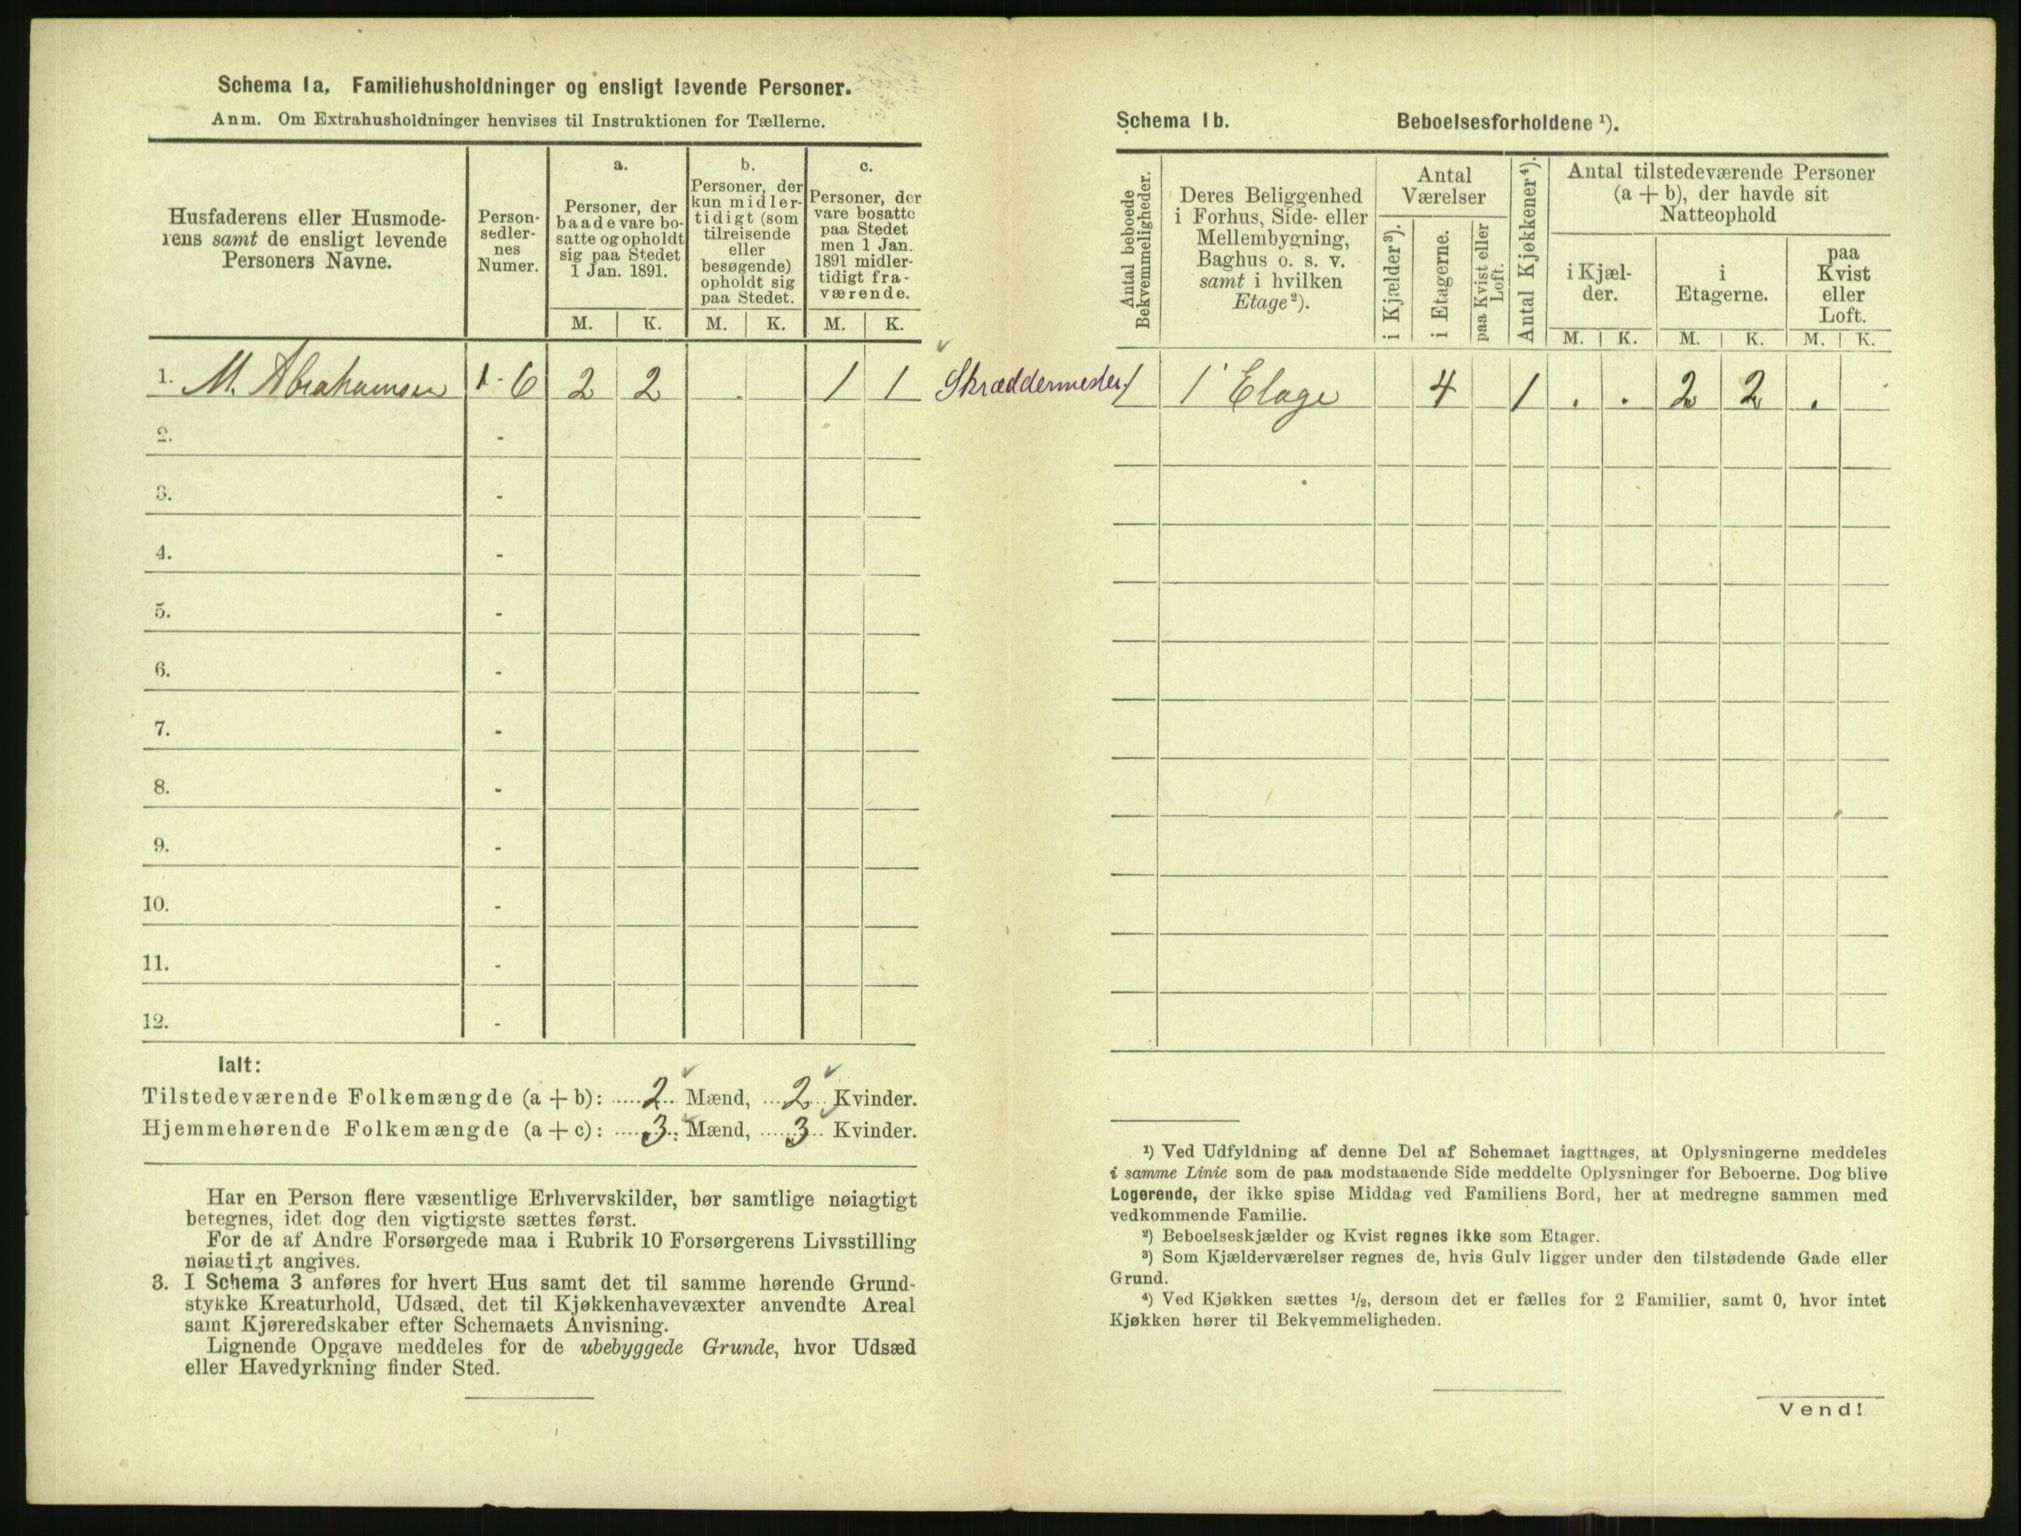 Schema 1a. Familiehusholdninger og ensligt levende Personer.
Anm. Om Extrahusholdninger henvises til Instruktionen for Tællerne.
Husfaderens eller Husmode-
rens samt de ensligt levende
Personers Navne.
Person-
sedler-
nes
Numer.
a.
Personer, der
baade vare bo-
satte og opholdt
sig paa Stedet
1 Jan. 1891.
b.
Personer, der
kun midler-
tidigt (som
tilreisende
eller
besøgende)
opholdt sig
paa Stedet.
c.
Personer, der
vare bosatte
paa Stedet
men 1 Jan.
1891 midler-
tidigt fra-
værende.
M. K. M. K. M. K.
1. M. Abrahamsen 1 - 6 2 2 . 1 1 Skræddermester
2. -
3. -
4. -
5. -
6. -
7. -
8. -
9. -
10. -
11. -
12. -
Ialt:
Tilstedeværende Folkemængde (a + b): 2 Mænd, 2 Kvinder.
Hjemmehørende Folkemængde (a + c): 3 Mænd, 3 Kvinder.
Har en Person flere væsentlige Erhvervskilder, bør samtlige nøiagtigt
betegnes, idet dog den vigtigste sættes først.
For de af Andre Forsørgede maa i Rubrik 10 Forsørgerens Livsstilling
nøiagtigt angives.
3. I Schema 3 anføres for hvert Hus samt det til samme hørende Grund-
stykke Kreaturhold, Udsæd, det til Kjøkkenhavevæxter anvendte Areal
samt Kjøreredskaber efter Schemaets Anvisning.
Lignende Opgave meddeles for de ubebyggede Grunde, hvor Udsæd
eller Havedyrkning finder Sted.
Schema 1b. Beboelsesforholdene ¹).
Antal beboede
Bekvemmeligheder.
Deres Beliggenhed
i Forhus, Side- eller
Mellembygning,
Baghus o. s. v.
samt i hvilken
Etage ²).
Antal
Værelser
i Kjælder ³).
i Etagerne.
paa Kvist eller
Loft.
Antal Kjøkkener ⁴).
Antal tilstedeværende Personer
(a + b), der havde sit
Natteophold
i Kjæl-
der.
i
Etagerne.
paa
Kvist
eller
Loft.
M. K. M. K. M. K.
1 1' Etage 4 1 . . 2 2 .
¹) Ved Udfyldning af denne Del af Schemaet iagttages, at Oplysningerne meddeles
i samme Linie som de paa modstaaende Side meddelte Oplysninger for Beboerne. Dog blive
Logerende, der ikke spise Middag ved Familiens Bord, her at medregne sammen med
vedkommende Familie.
²) Beboelseskjælder og Kvist regnes ikke som Etager.
³) Som Kjælderværelser regnes de, hvis Gulv ligger under den tilstødende Gade eller
Grund.
⁴) Ved Kjøkken sættes ½, dersom det er fælles for 2 Familier, samt 0, hvor intet
Kjøkken hører til Bekvemmeligheden.
Vend!